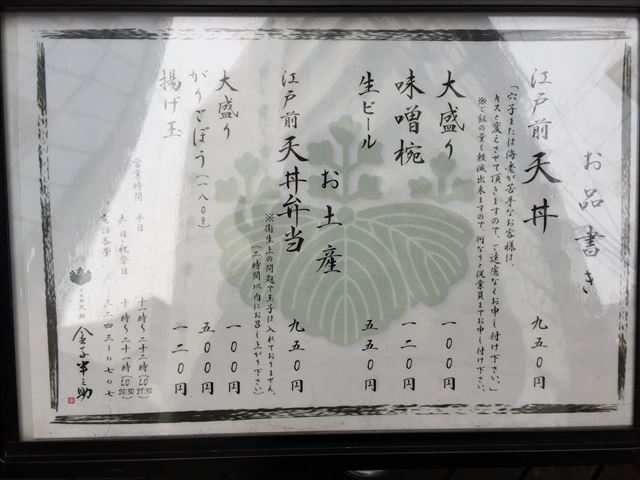 お品書き
江戸前 天丼 九五〇円
「穴子または海老が苦手なお客様は、
キスと変えさせて頂きますので、ご遠慮なくお申し付け下さい。」
※ご飯の量も軽減出来ますので、何なりと従業員までお申し付け下さい。
大盛り 一〇〇円
味噌椀 一二〇円
生ビール 五五〇円
お土産
江戸前 天丼弁当 九五〇円
※衛生上の問題で玉子は入れておりません。
(二時間以内にお召し上がり下さい。)
大盛り 一〇〇円
がりごぼう(一八〇g) 五〇〇円
揚げ玉 一二〇円
営業時間 平日 十一時〜二十二時(LO 21:30)
土・日・祝祭日 十時〜二十一時(LO 20:30)
電話番号 三二四三-〇七〇七
金子半之助